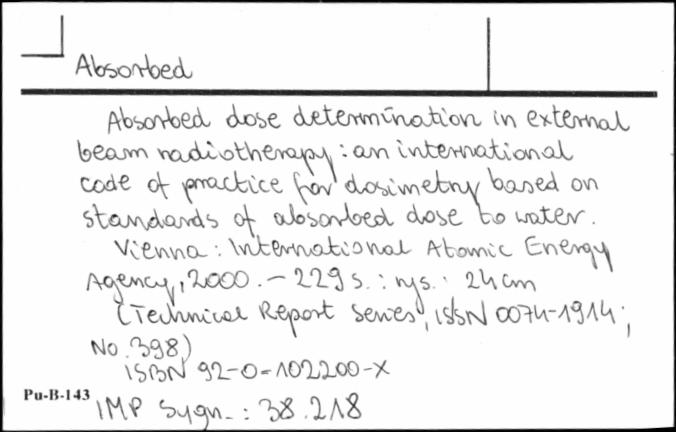 Absorbed
Absorbed dose determination in external
beam radiotherapy : an international
code of practice for dosimetry based on
standards of absorbed dose to water.
Vienna : International Atomic Energy
Agency, 2000. - 229 s. : rys. ; 24 cm
(Technical Report Series, ISSN 0074-1914 ;
No. 398)
ISBN 92-0-102200-X
Pu-B-143
IMP Sygn. : 38.218